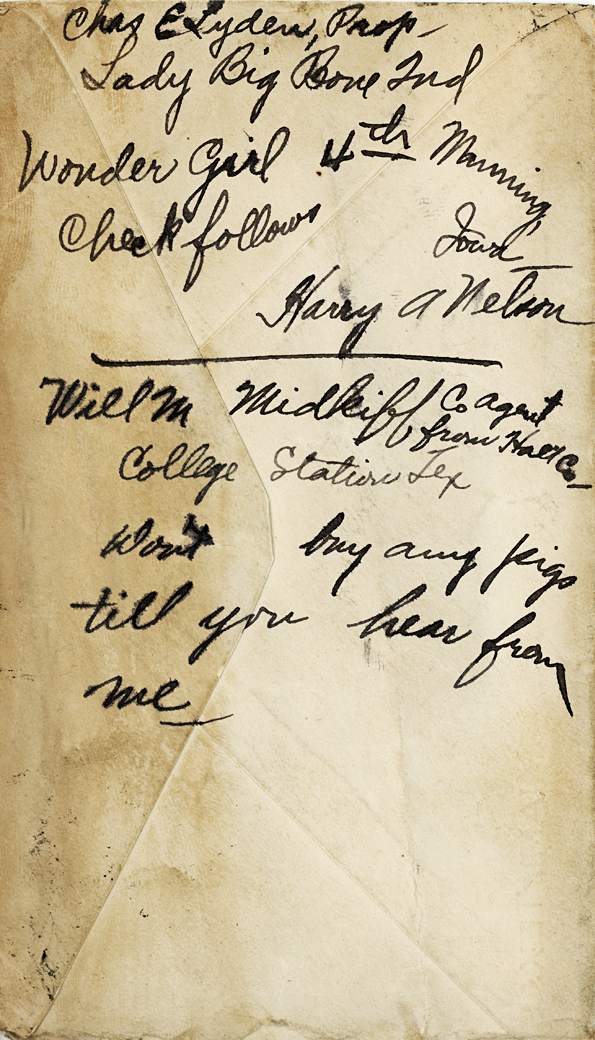 Chas E Lyden, Prop-
Lady Big Bone 2nd
Wonder Girl 4th Manning,
Check follows Iowa
Harry A Nelson
Will M Midkiff Co agent
from Hall Co
College Station Tex
Won't buy any pigs
till you hear from
me